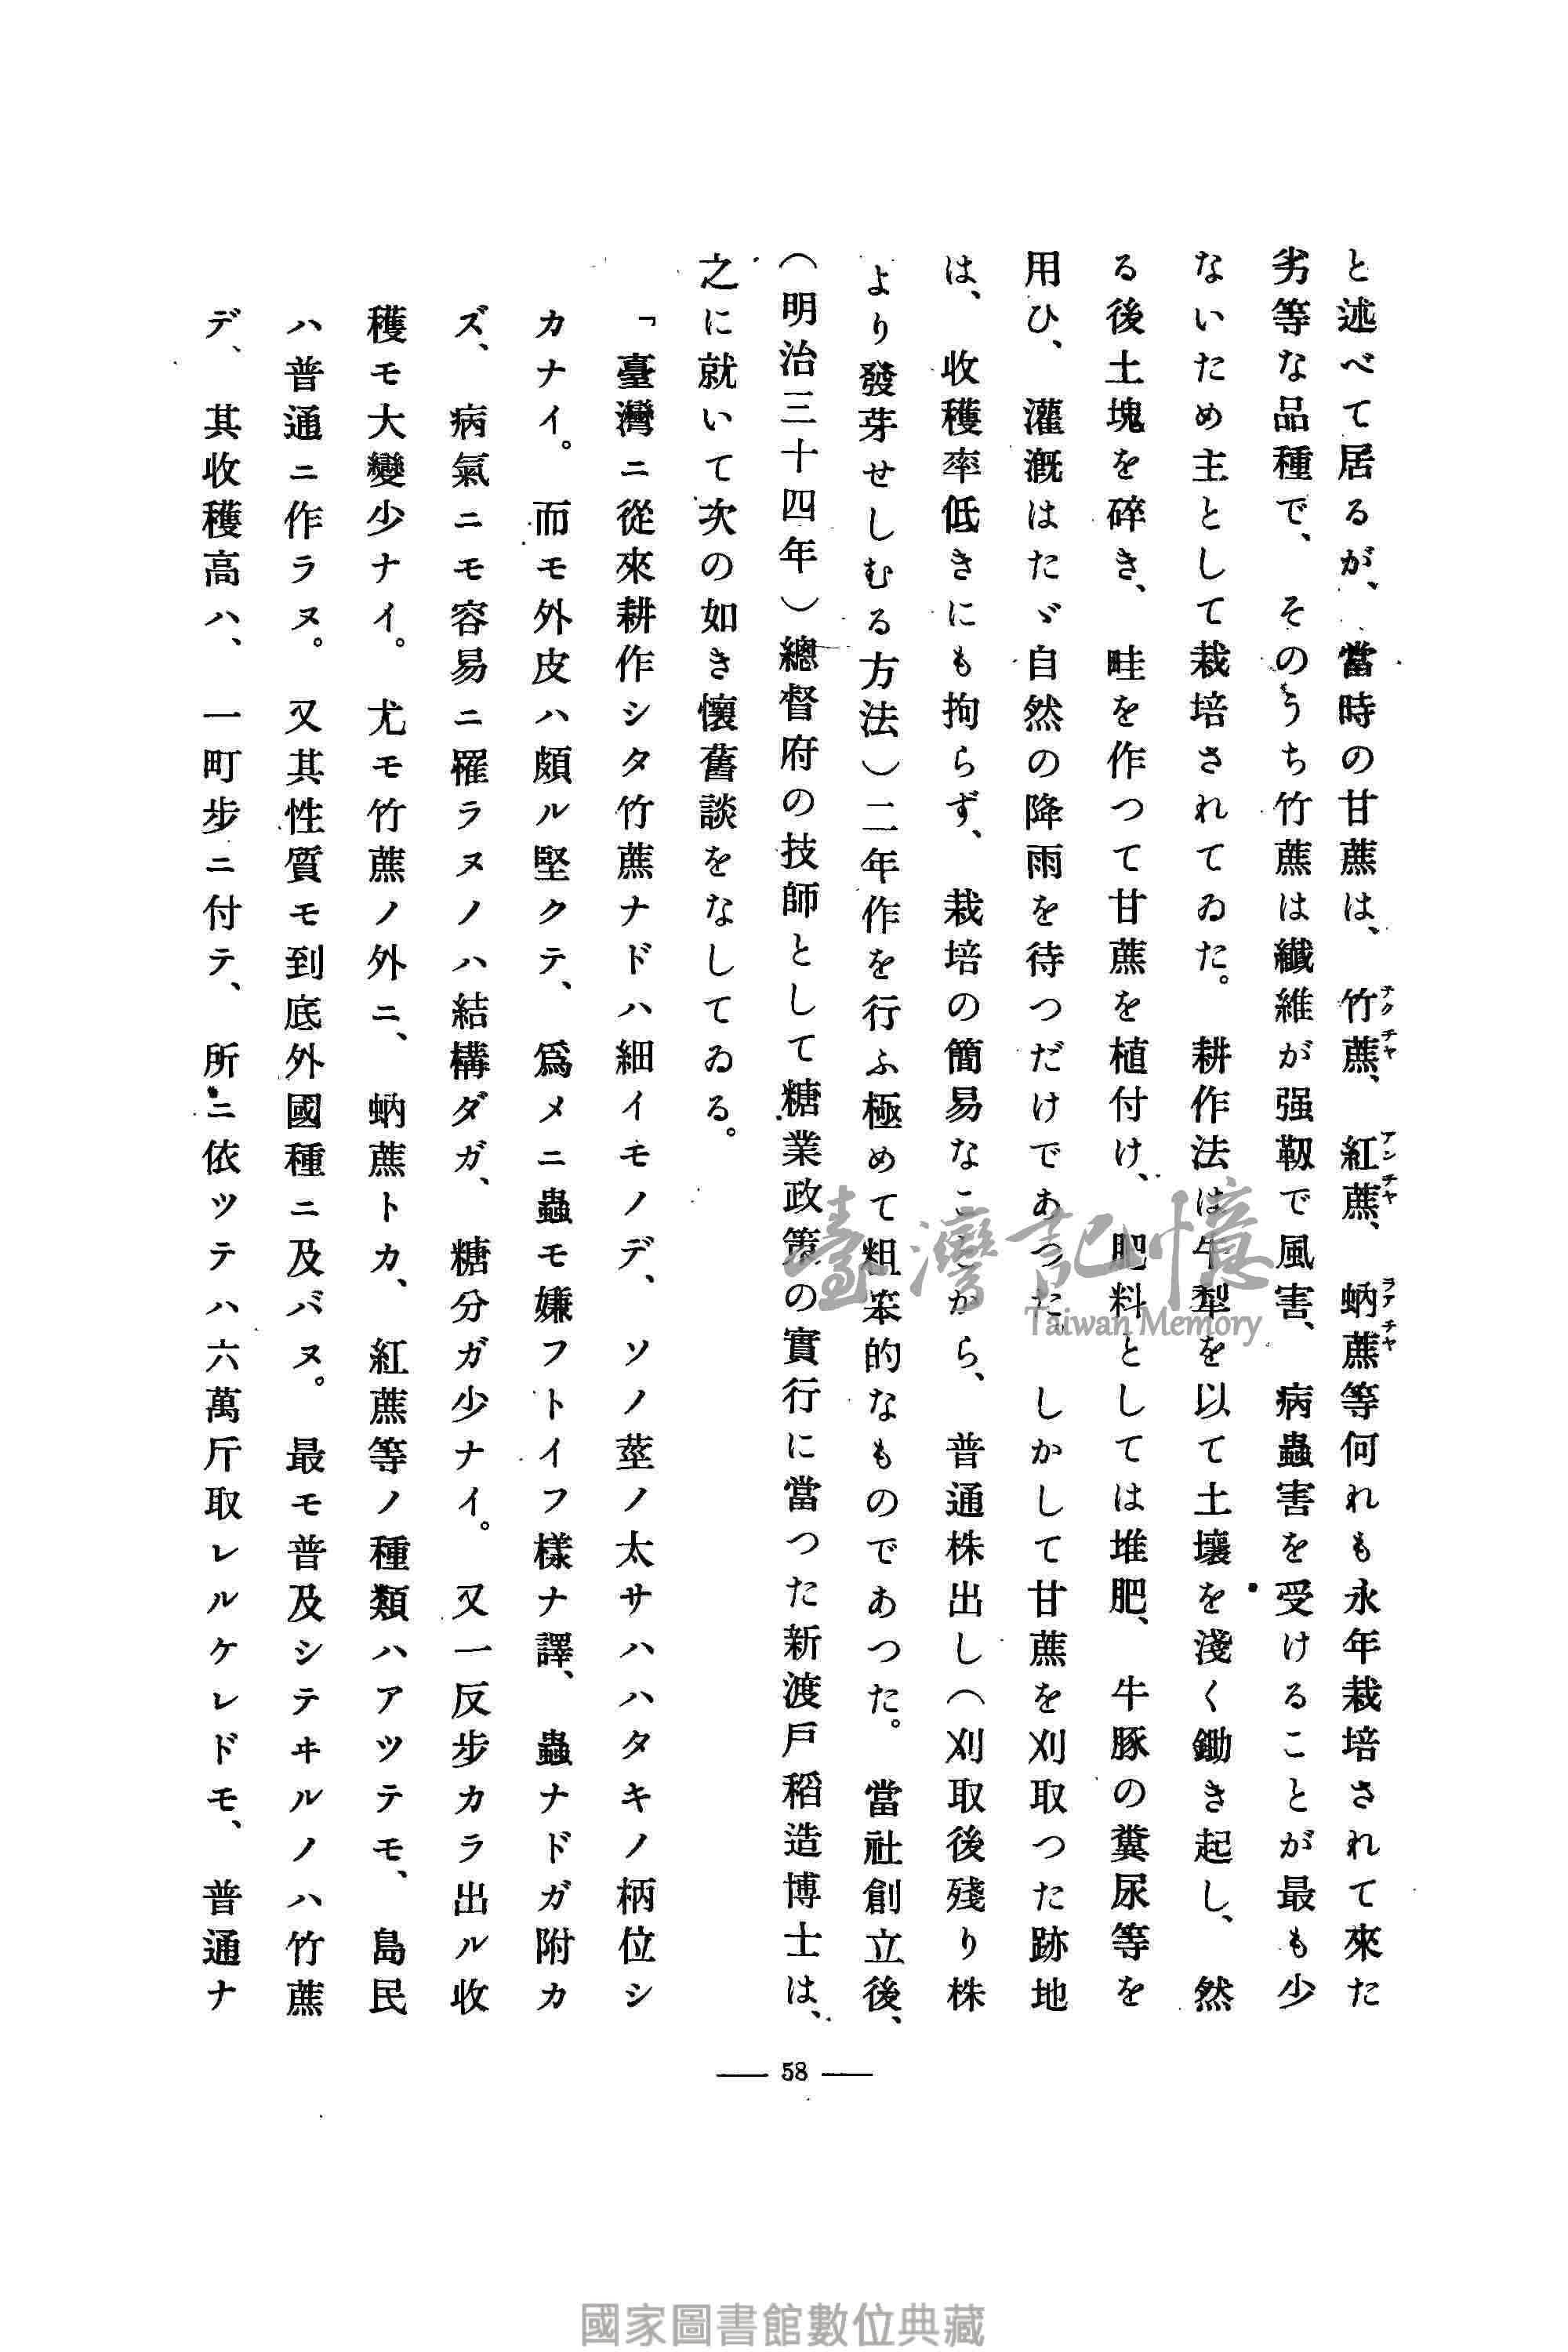 と述べて居るが、當時の甘蔗は、竹蔗、紅蔗、蚋蔗等何れも永年栽培されて來た
テクチヤ
アンチヤ
ラアチヤ
劣等な品種で、そのうち竹蔗は纖維が强靱で風害、病蟲害を受けることが最も少
ないため主として栽培されてゐた。耕作法は牛犁を以て土壤を淺く鋤き起し、然
る後土塊を碎き、畦を作つて甘蔗を植付け、肥料としては堆肥、牛豚の糞尿等を
用ひ、灌漑はたゞ自然の降雨を待つだけであつた。しかして甘蔗を刈取つた跡地
は、收穫率低きにも拘らず、栽培の簡易なことから、普通株出し（刈取後殘り株
より發芽せしむる方法）二年作を行ふ極めて粗笨的なものであつた。當社創立後、
（明治三十四年）總督府の技師として糖業政策の實行に當つた新渡戶稻造博士は、
之に就いて次の如き懷舊談をなしてゐる。
「臺灣ニ從來耕作シタ竹蔗ナドハ細イモノデ、ソノ莖ノ太サハハタキノ柄位シ
カナイ。而モ外皮ハ頗ル堅クテ、爲メニ蟲モ嫌フトイフ樣ナ譯、蟲ナドガ附カ
ズ、病氣ニモ容易ニ罹ラヌノハ結構ダガ、糖分ガ少ナイ。又一反步カラ出ル收
穫モ大變少ナイ。尤モ竹蔗ノ外ニ、蚋蔗トカ、紅蔗等ノ種類ハアツテモ、島民
ハ普通ニ作ラヌ。又其性質モ到底外國種ニ及バヌ。最モ普及シテヰルノハ竹蔗
デ、其收穫高ハ、一町步ニ付テ、所ニ依ツテハ六萬斤取レルケレドモ、普通ナ
58
臺灣記憶
Taiwan Memory
國家圖書館數位典藏